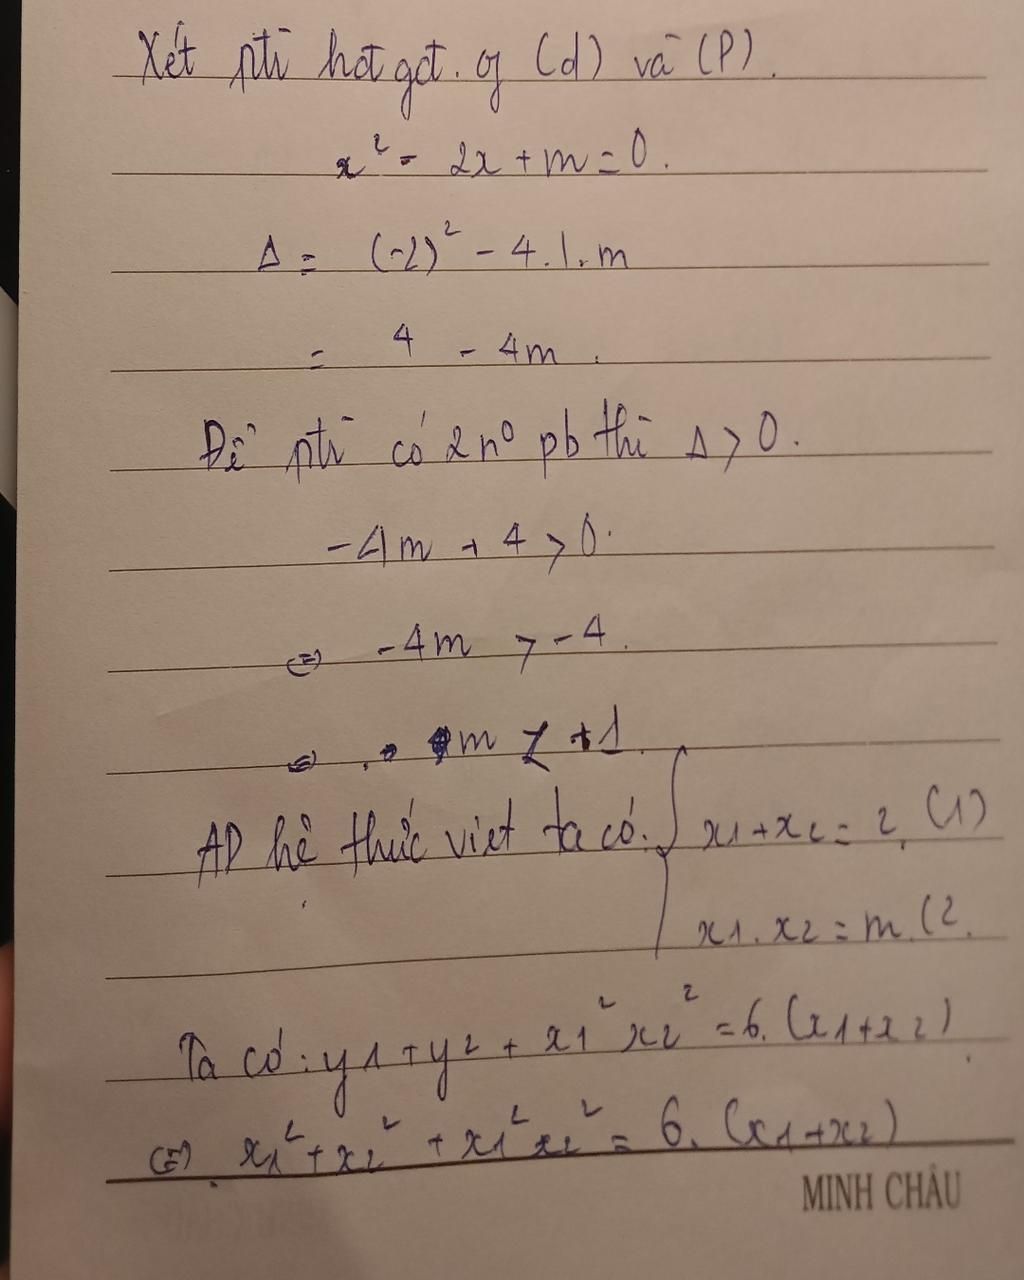 Xét ptr hđt gđ. of (d) và (P).
x² - 2x + m = 0.
Δ = (-2)² - 4.1.m
= 4 - 4m.
Để ptr có 2 n⁰ pb thì Δ > 0.
-4m + 4 > 0.
⇔ -4m > -4.
⇔ m < +1.
AD hê thức viet ta có: { x1 + x2 = 2. (1)
x1.x2 = m. (2.
Ta có: y1 + y2 + x1² x2² = 6. (x1 + x2)
⇔ x1² + x2² + x1² x2² = 6. (x1 + x2)
MINH CHÂU